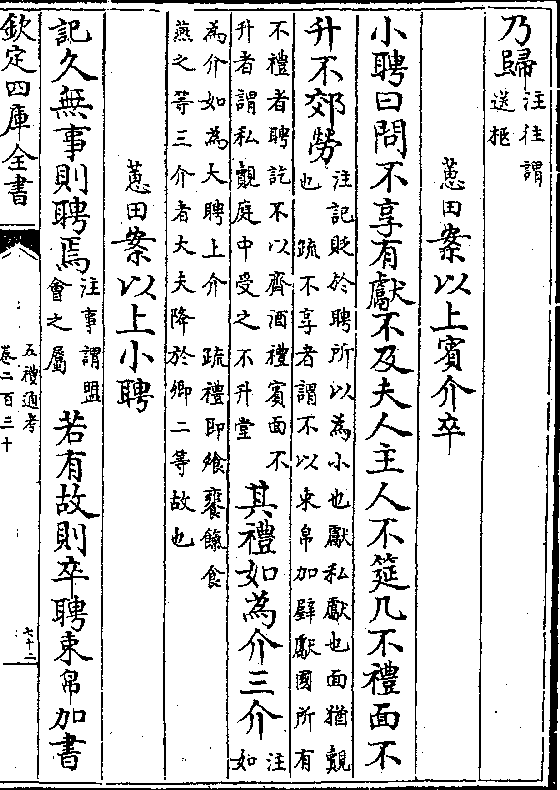 乃歸注往謂送柩
蕙田案以上賓介卒
小聘曰問不享有獻不及夫人主人不筵几不禮面不
升不郊勞注記貶於聘所以為小也獻私獻也面猶覿也 疏不享者謂不以束帛加璧獻國所有
不禮者聘訖不以齊酒禮賓面不升者謂私覿庭中受之不升堂 其禮如為介三介注如
為介如為大聘上介 疏禮即飱饔餼食燕之等三介者大夫降於卿二等故也
蕙田案以上小聘
記久無事則聘焉注事謂盟會之屬 若有故則卒聘束帛加書
欽定四庫全書
五禮通考
卷二百三十
七十二